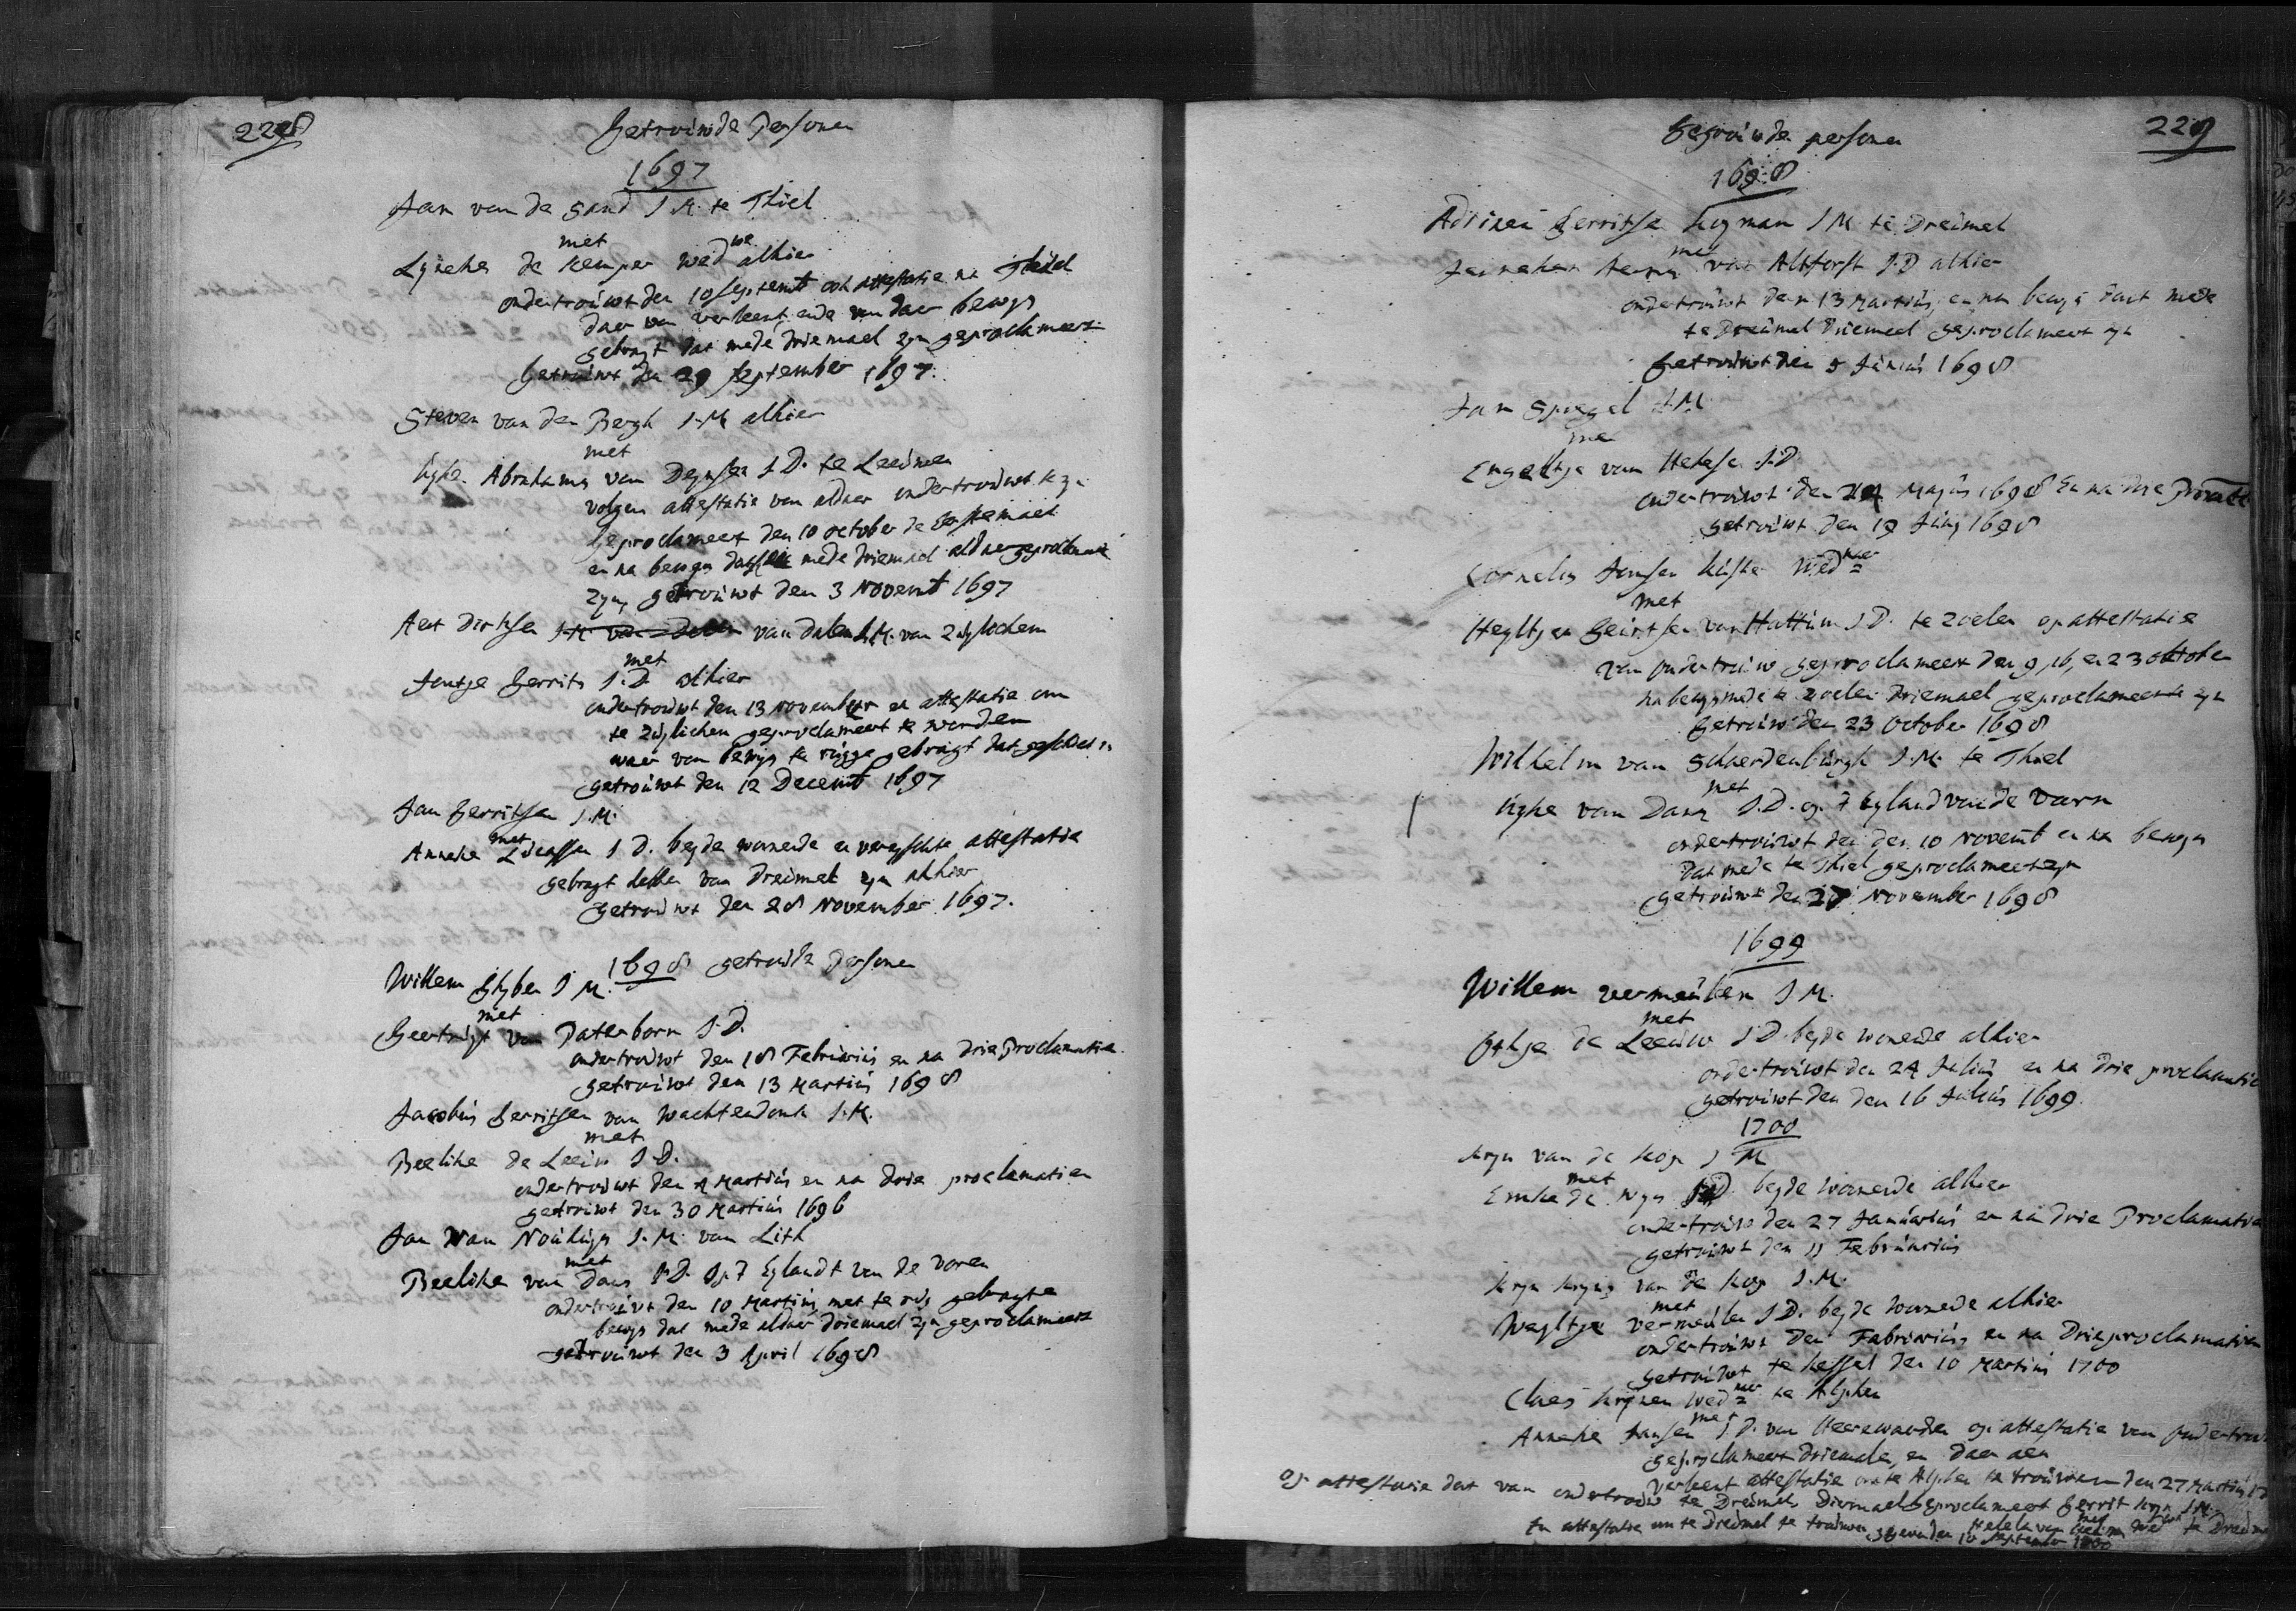 228
Getrouwde Personen
1697
Jan van de Sand J.M. te Thiel
met
Lyneke de Kemper wed we alhier
ondertrouwt den 10 Septemb ook attestatie na Thiel
daer van verleent ende van daer bewys
gebragt dat mede driemael zyn geproclameert
Getrouwt den 29 September 1697.
Steven van den Bergh J.M. alhier
met
Abrahams van J.D. te Leeuwen
volgens attestatie van aldaer ondertrouwt te zyn
Geproclameert den 10 october de Eerstemael
en na bewys dat mede driemael aldaer geproclameert
zyn, getrouwt den 3 Novemb 1697
Aert Dirksen J.M. van Dalen van Dalen J.M. van Zuylichem
met
Jentje Gerrits J.D. alhier
ondertrouwt den 13 november en attestatie om
te Zuylichem geproclameert te worden
waer van bewys te rugge gebragt dat geschiet is
getrouwt den 12 Decemb 1697
Jan Gerritsen J.M.
met
Anneke Lucassen J.D. beyde wonende en vereyschte attestatie
gebragt hebben van Dreumel zyn alhier
Getrouwt den 28 November 1697.
1698 getrouwde Personen
Willem Gysber J M.
met
Geertruyt van Paterborn J.D.
ondertrouwt den 18 Februarius en na drie Proclamatie
getrouwt den 13 Martius 1698
Jacobus Gerritsen van Wachtendonk J.M.
met
Beelike de Leeuw J.D.
ondertrouwt den 4 Martius en na drie proclamatien
getrouwt den 30 Martius 1696
Jan van J.M. van Lith
met
Beelike van Dans J.D. op t Eylandt van de Voren
ondertrouwt den 10 Martius met te rug gebragte
bewys dat mede aldaer driemael zyn geproclameert
getrouwt den 3 April 1698
229
Getrouwde personen
1698
Adriaen Gerritse Kooyman J M. te Dreumel
met
Jenneken van Altforst J.D alhier
ondertrouwt den 13 Martius, en na bewys dat mede
te Dreumel driemael geproclameert zyn
Getrouwt den 5 Junius 1698
Jan Spiegel J.M.
met
Engeltje van J.D
ondertrouwt den 24 Majus 1698 En na drie
getrouwt den 19 Juny 1698
Cornelis Jansen Kuster Wed nr
met
Heyltjen Geurtsen van Hattum J.D. te Zoelen op attestatie
van ondertrouw geproclameert den 9, 16, en 23 oktober
na bewys mede te zoelen driemael geproclameert zyn
Getrouwt den 23 October 1698
Wilhelm van Schaerdenburgh J.M. te Thiel
met
van Dans J.D. op t Eyland van de Varen
ondertrouwt den den 10 Novemb en na bewys
dat mede te Thiel geproclameert zyn
Getrouwt den 27 November 1698
1699
Willem vermeulen J M.
met
de Leeuw J.D. beyde wonende alhier
ondertrouwt den 24 Julius en na drie proclamatie
getrouwt den den 16 Julius 1699
1700
Kryn van de Kop J M
met
Emke de Wys J.D beyde wonende alhier
ondertrouwt den 27 Januarius en na drie Proclamatie
getrouwt den 11 Februarius
Kryn van de Kop J.M.
met
Weyltje vermeulen J.D. beyde wonende alhier
ondertrouwt den Februarius en na Drie proclamatien
getrouwt te Hessel den 10 Martius 1700
Claes Krynen Wed nr te Alphen
met
Anneke Jansen J.D. van Heerewaerden op attestatie van ondertrou
geproclameert driemael, en daer aen
verleent attestatie om te Alphen te trouwen den 27 Martius
op attestatie dat van ondertrouw te Dreumel, Driemael geproclameert Gerrit Kryn J.M.
met
En attestatie om te Dreumel te trouwen gegeven den 10 September 1700 van wed te Dreumel